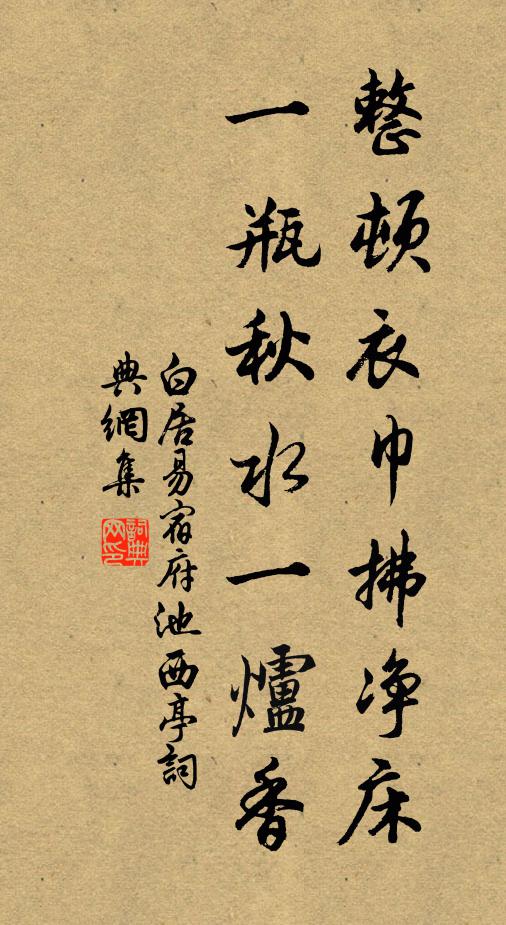 整頓衣巾拂净床
一瓶秋水一爐香
白居易宿府池西亭詞
典網集
詞典网印